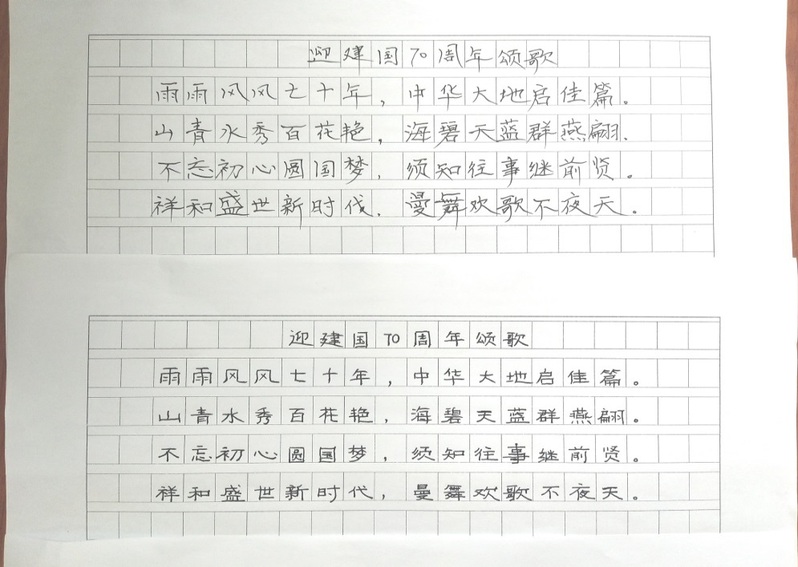 迎建国70周年颂歌
雨雨风风七十年，中华大地启佳篇。
山青水秀百花艳，海碧天蓝群燕翩.
不忘初心圆国梦，须知往事继前贤。
祥和盛世新时代.曼舞欢歌不夜天。
迎建国70周年颂歌
雨雨风风七十年，中华大地启佳篇。
山青水秀百花艳，海碧天蓝群燕翩。
不忘初心圆国梦，须知往事继前贤。
祥和盛世新时代，曼舞欢歌不夜天。